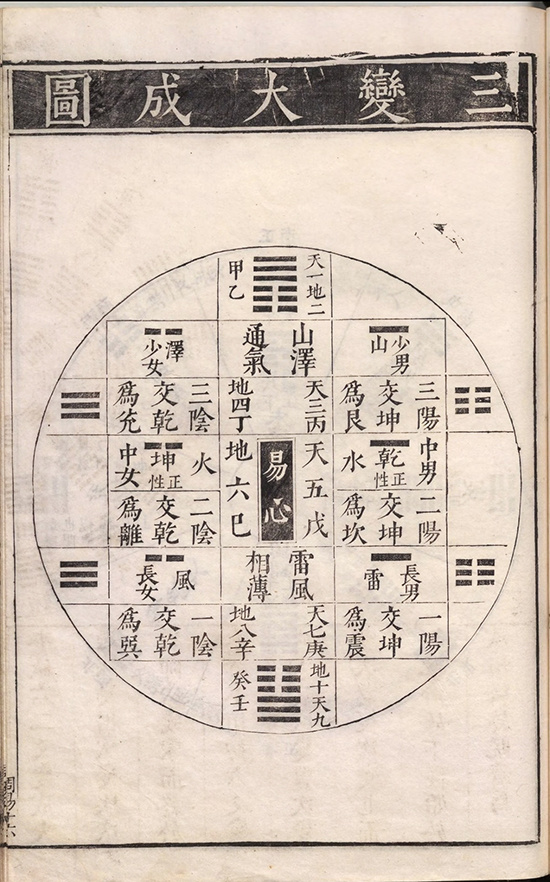 三變大成圖
天一地二
甲乙
少男
山
山澤
通氣
澤
少女
三陽
交坤
爲艮
天三丙
地四丁
三陰
交乾
爲兊
中男
乾正性
水
天五戊
易心
地六己
火
坤正性
中女
二陽
交坤
爲坎
二陰
交乾
爲離
長男
雷
雷風
相薄
風
長女
一陽
交坤
爲震
天七庚
地八辛
一陰
交乾
爲巽
地十天九
癸壬